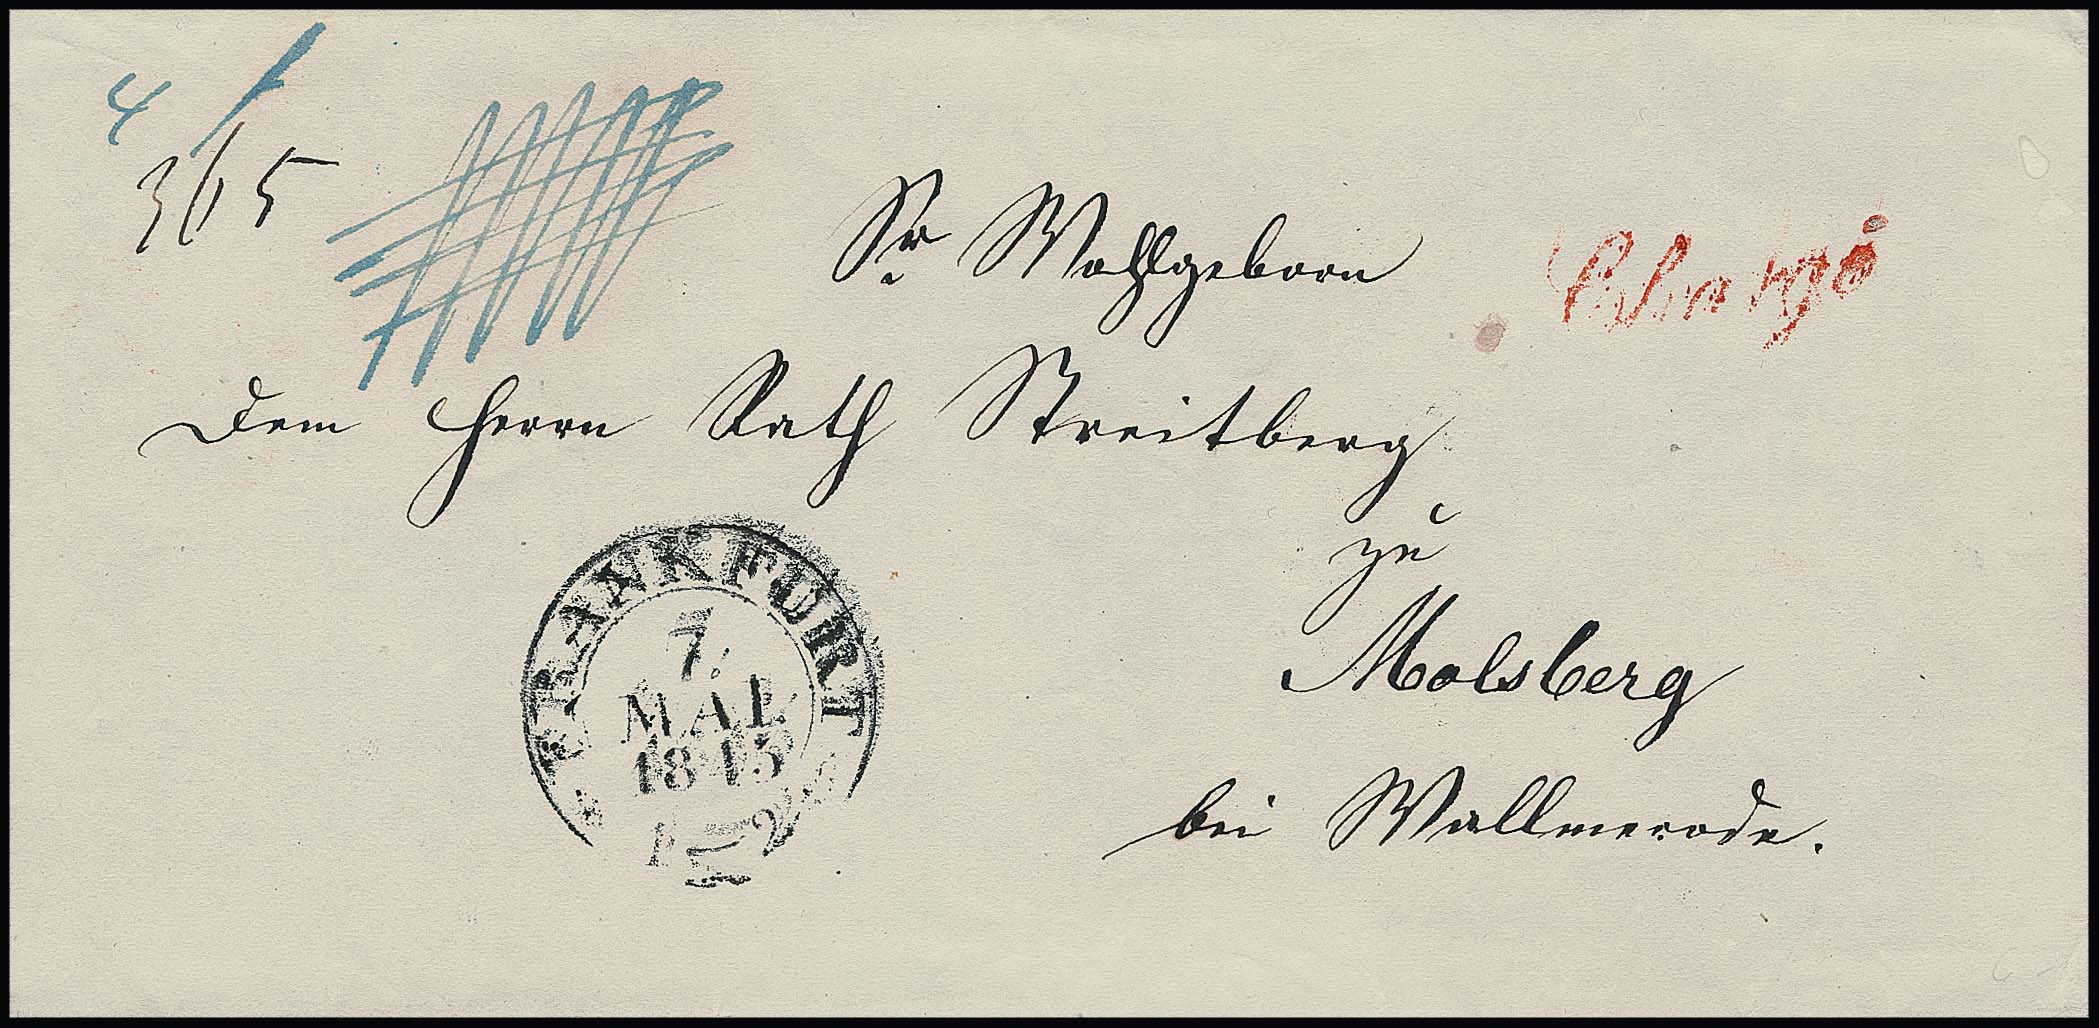 4
365
Sr. Wohlgeborn
Chargé
Dem Herrn Rath Streitberg
zu
Molsberg
bei Wallmerode.
FRANKFURT
7.
MAI.
1845
1 - 2